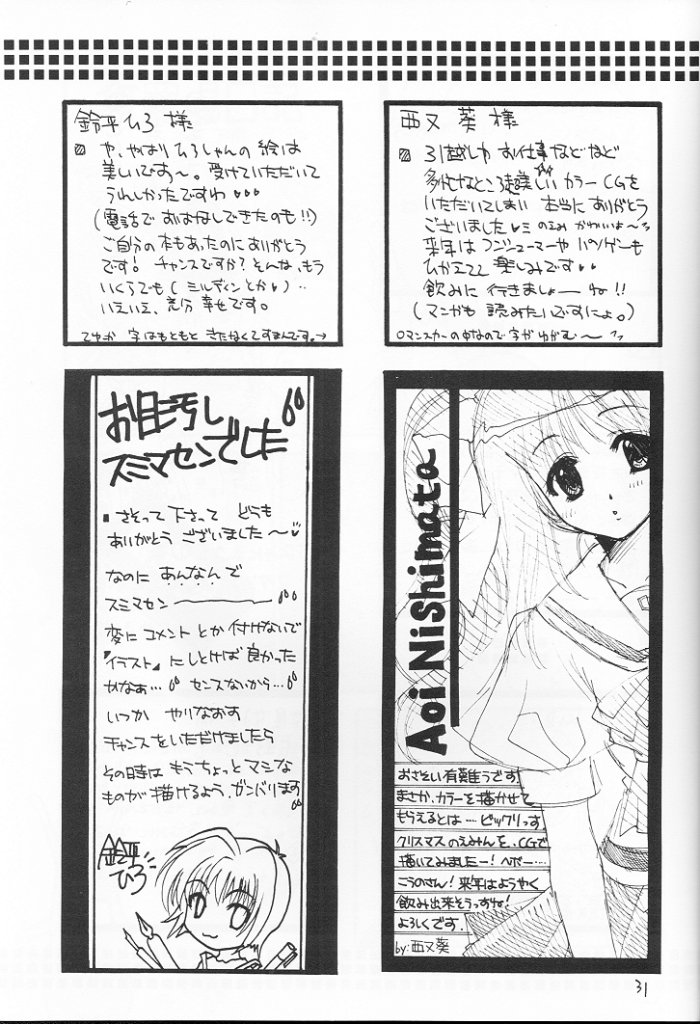 西又 葵 様
引越しや お仕事などなど
多忙なところ超美しい カラーCGを
いただいてしまい 本当にありがとう
ございました
来年は コンシューマーや パソゲーも
ひかえてて 楽しみです
飲みに 行きましょーね!!
(マンガも 読みたいですにょ。)
鈴平ひろ 様
や、やはり ひろしゃんの 絵は
美しいです〜。受けていただいて
うれしかったですわ
(電話で おはなしできたのも!!)
ご自分の本もあったのに ありがとう
です! チャンスですか?そんな、もう
いくらでも(ミルディンとか)‥
いえいえ、充分 幸せです。
てゆか 字はもともと きたなくてすまんです。→
Aoi Nishimata
おさそい有難うです
まさか、カラーを描かせて
もらえるとは… ビックリっす
クリスマスのえみんを、CGで
描いてみましたー! ヘボー…
こうのさん! 来年はようやく
飲み出来そうっすね!
よろしくです。
by:西又葵
お目汚し
スミマセンでした
■さそって下さって どうも
ありがとう ございました〜
なのに あんなんで
スミマセン―――
変に コメント とか 付けないで
『イラスト』にしとけば 良かった
かなぁ… センスないから…
いつか やりなおす
チャンスをいただけましたら
その時は もうちょっと マシな
ものが 描けるよう、ガンバります
鈴平
ひろ
31